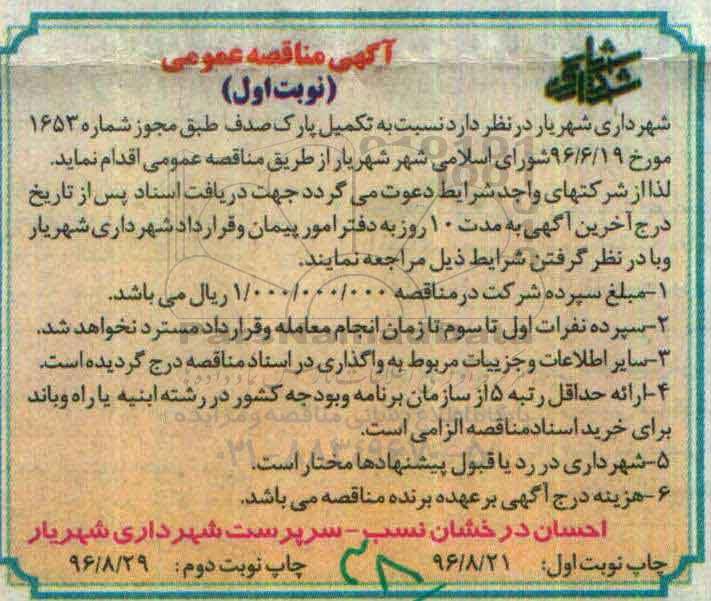 آگهی مناقصه عمومی
(نوبت اول)
شهرداری شهریار در نظر دارد نسبت به تکمیل پارک صدف طبق مجوز شماره ۱۶۵۳
مورخ ۹۶/۶/۱۹ شورای اسلامی شهر شهریار از طریق مناقصه عمومی اقدام نماید.
لذا از شرکتهای واجد شرایط دعوت می گردد جهت دریافت اسناد پس از تاریخ
درج آخرین آگهی به مدت ۱۰ روز به دفتر امور پیمان وقرارداد شهرداری شهریار
وبا در نظر گرفتن شرایط ذیل مراجعه نمایند.
۱-مبلغ سپرده شرکت در مناقصه ۱/۰۰۰/۰۰۰/۰۰۰ ریال می باشد.
۲-سپرده نفرات اول تا سوم تا زمان انجام معامله وقرارداد مسترد نخواهد شد.
۳-سایر اطلاعات وجزییات مربوط به واگذاری در اسناد مناقصه درج گردیده است.
۴-ارائه حداقل رتبه ۵ از سازمان برنامه وبودجه کشور در رشته ابنیه یا راه وباند
برای خرید اسناد مناقصه الزامی است.
۵-شهرداری در رد یا قبول پیشنهادها مختار است.
۶-هزینه درج آگهی بر عهده برنده مناقصه می باشد.
احسان درخشان نسب-سرپرست شهرداری شهریار
چاپ نوبت اول: ۹۶/۸/۲۱ چاپ نوبت دوم: ۹۶/۸/۲۹